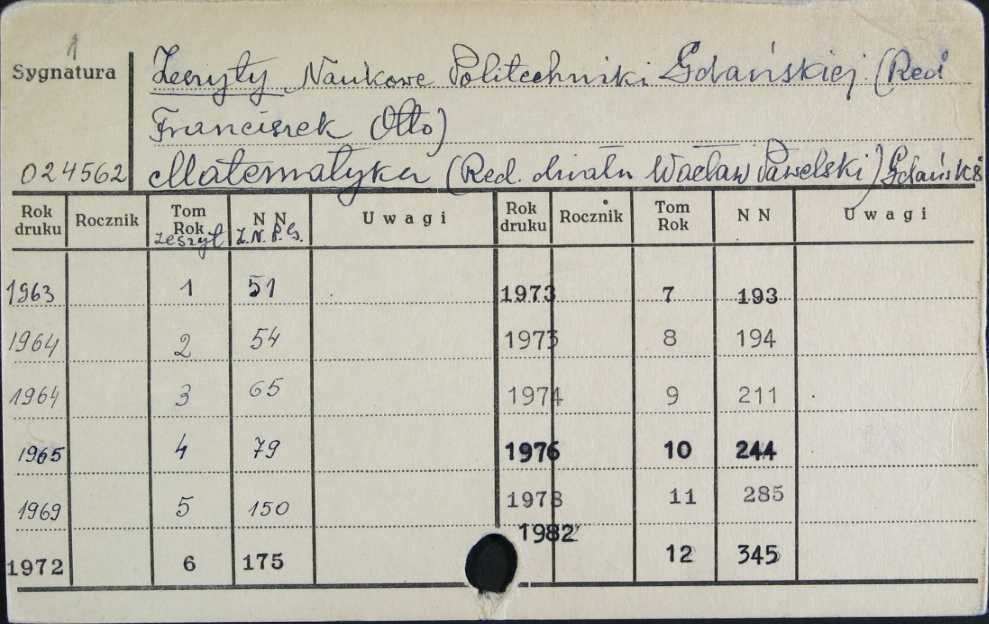 1
Sygnatura
Zeszyty Naukowe Politechniki Gdańskiej (Red
Franciszek Otto)
024562 Matematyka (Red. działu Wacław Pawelski) Gdańsk
Rok druku Rocznik Tom Rok Zeszyt N N Z.N.P.G. Uwagi Rok druku Rocznik Tom Rok N N Uwagi
1963 1 51 1973 7 193
1964 2 54 1973 8 194
1964 3 65 1974 9 211
1965 4 79 1976 10 244
1969 5 150 1978 11 285
1972 6 175 1982 12 345